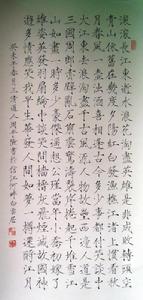 滾滾長江東逝水浪花淘盡英雄是非成敗轉頭空
青山依舊在幾度夕陽紅白髮漁樵江渚上慣看秋
月春風一壺濁酒喜相逢古今多少事都付笑談中
大江東去浪淘盡千古風流人物故壘西邊人道是
三國周郎赤壁亂石穿空驚濤拍岸捲起千堆雪江
山如畫一時多少豪傑遙想公瑾當年小喬初嫁了
雄姿英發羽扇綸巾談笑間檣櫓灰飛煙滅故國神
遊多情應笑我早生華髮人生如夢一樽還酹江月